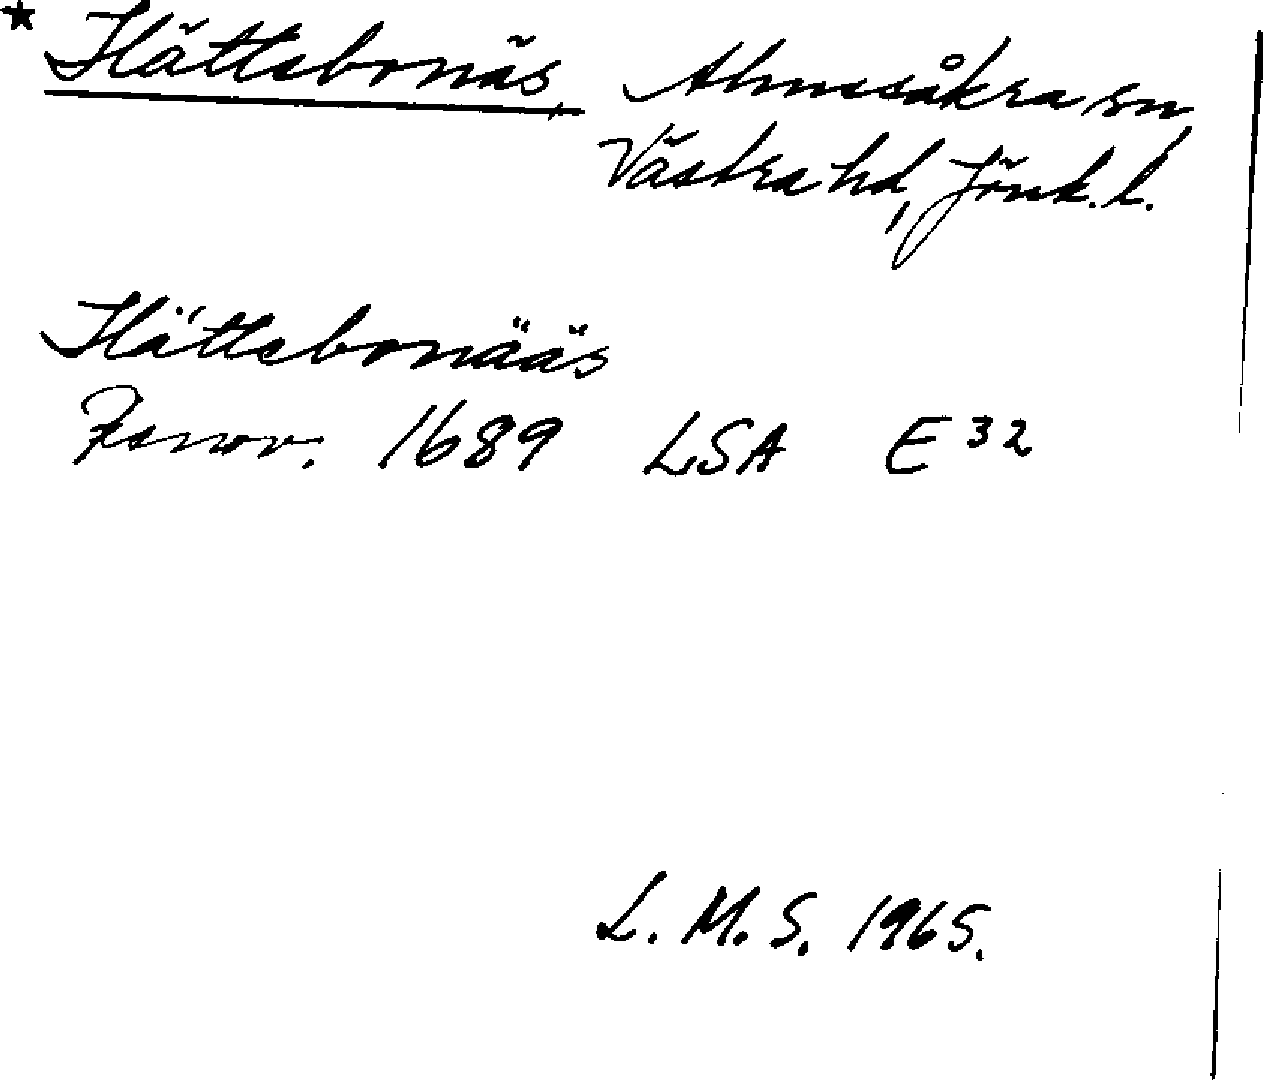 * Hättebonäs, Almesåkra sn,
Västra hd, Jönk. l.
Hättebonääs
Renov. 1689 LSA E 32
L. M. S. 1965.